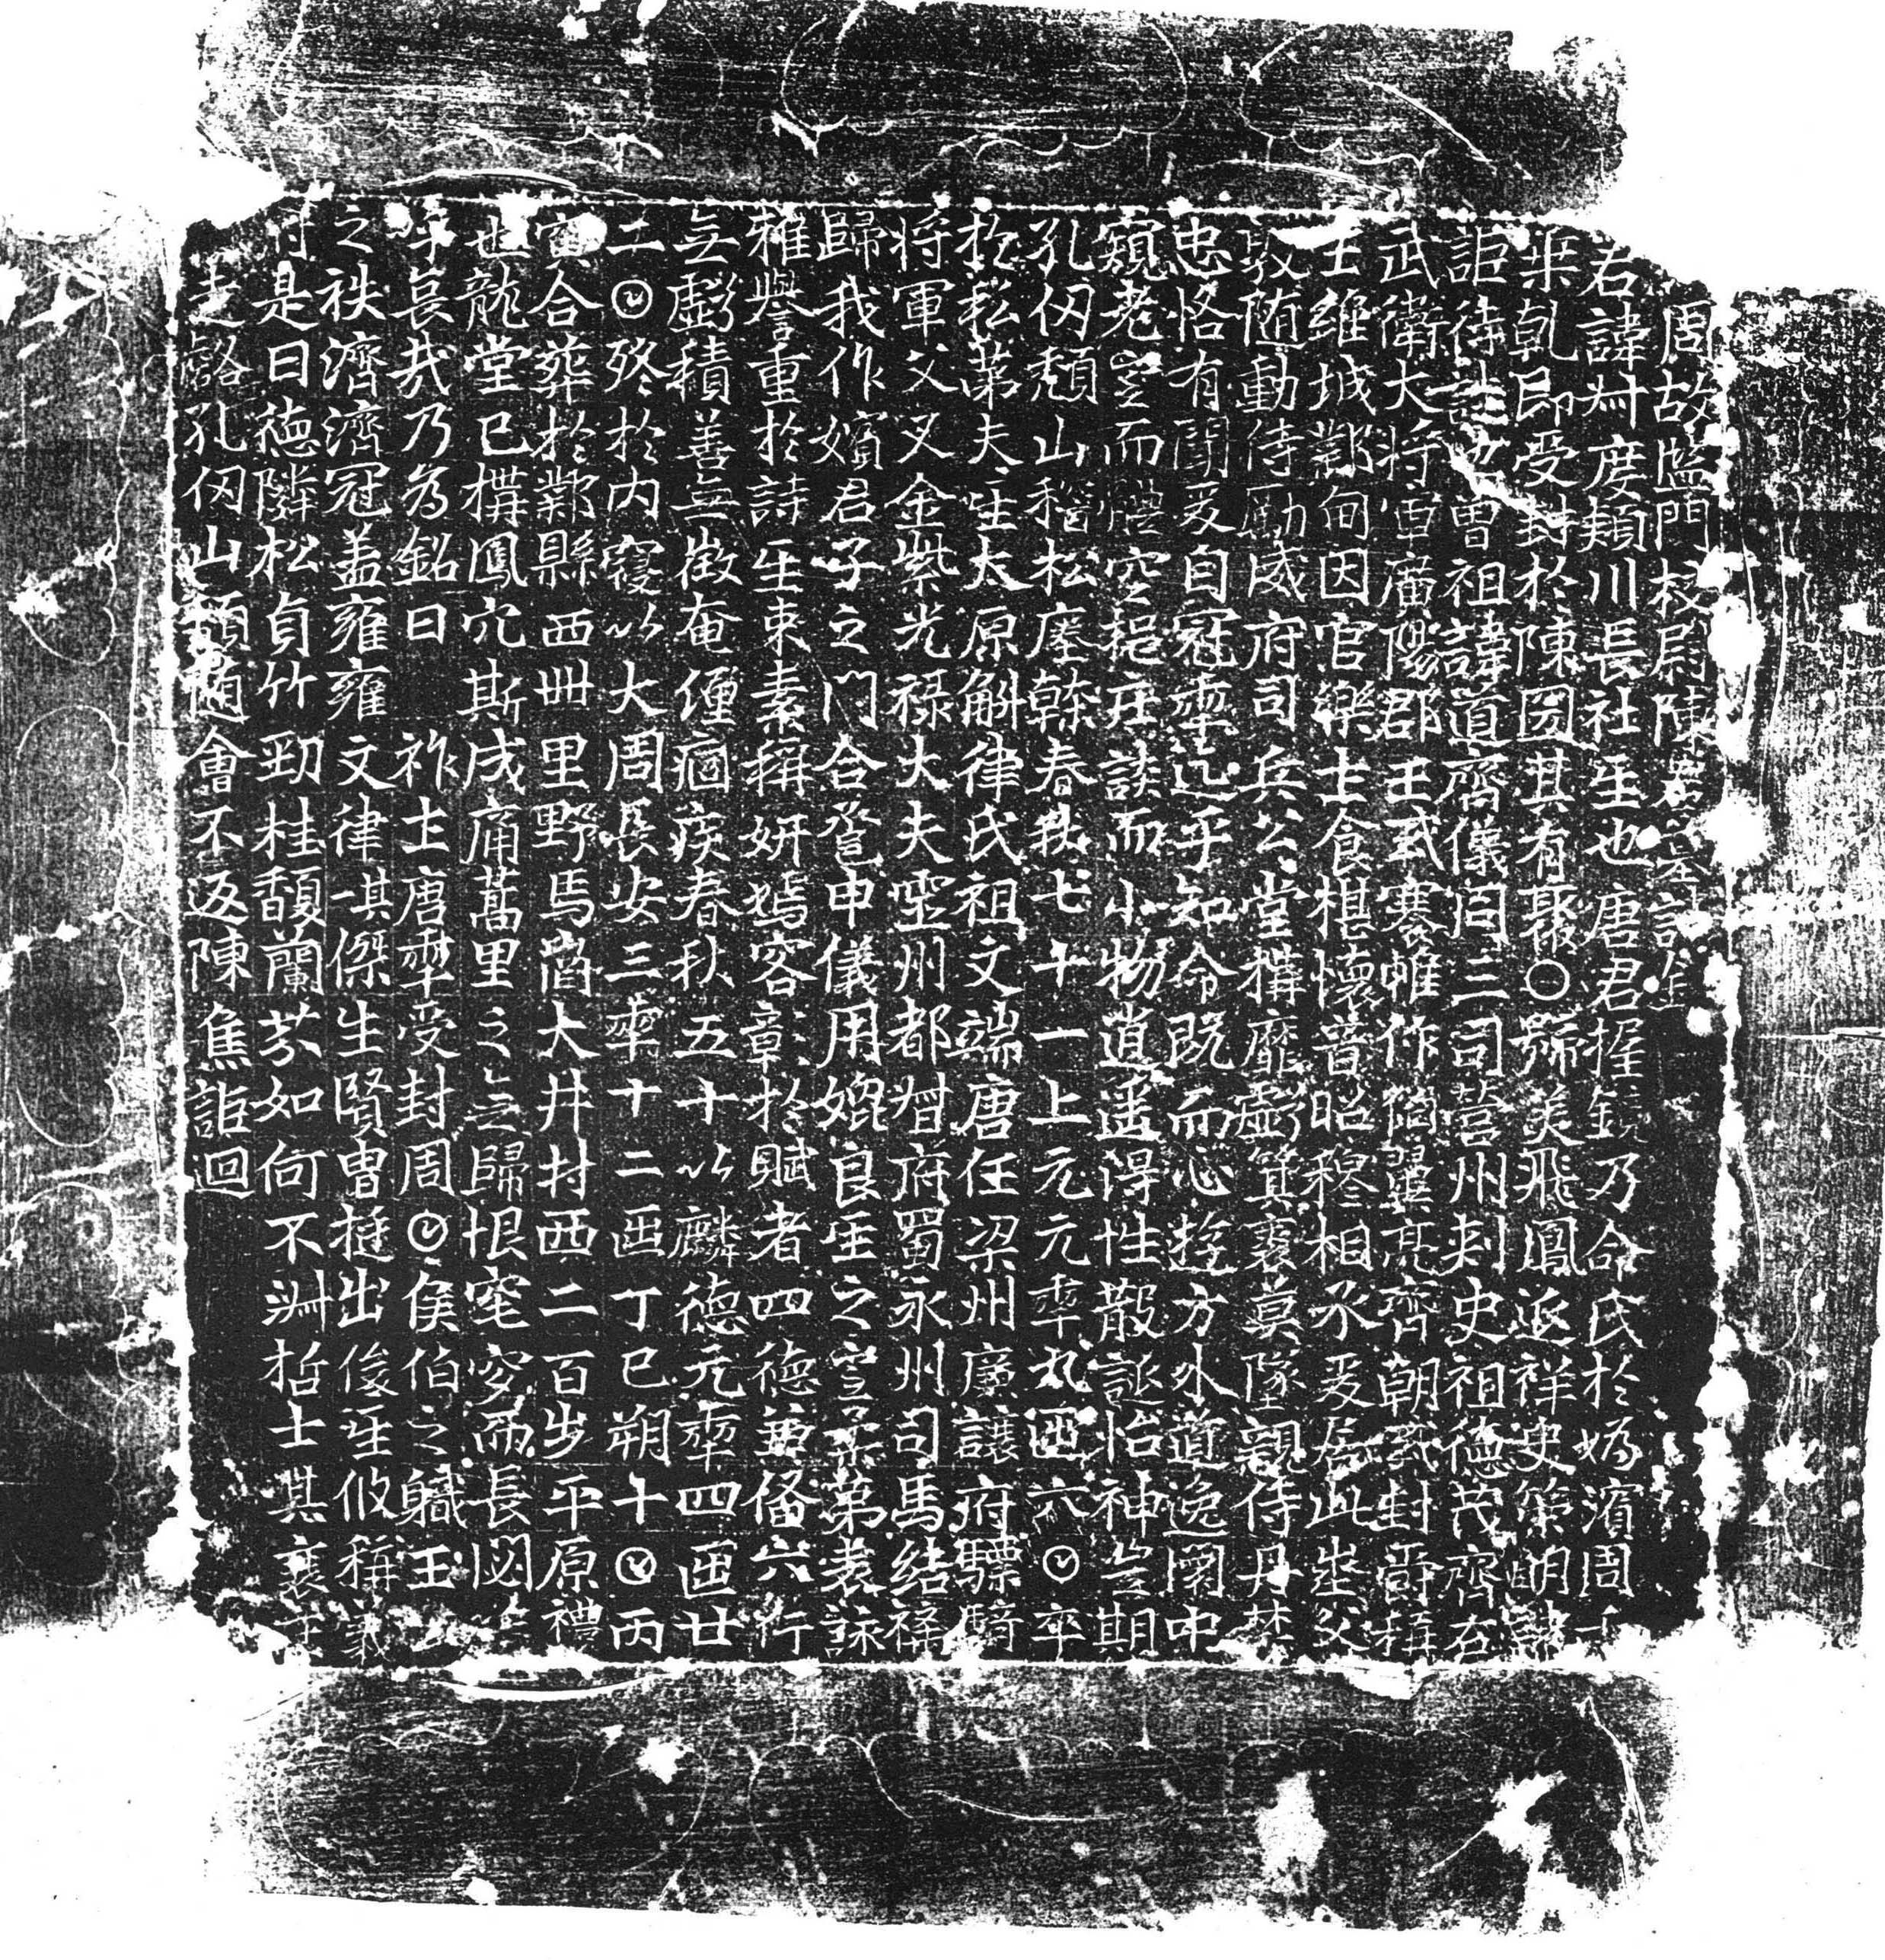 周故監門校尉陳君墓誌銘
君諱叔度潁川長社人也唐君握鏡乃命氏於媯濱周
業乾即受封於陳國其有聚星歸美飛鳳返祥史策明
詎待詳也曾祖諱道齊儀同三司營州刺史祖德茂齊
武衛大將軍廣陽郡王式褰帷作翼亮齊朝封爵
王維城鄴甸因官樂土食椹懷音昭穆相承爰居此埊父
敦随勳侍勵威府司兵公堂構靡虧箕裘莫墜親侍丹
忠恪有聞爰自冠年迄乎知命既而心遊方外道逸圜中
窺老而體空挹莊談而小物道遥得性散誕怡神豈期
孔仞頹山稽松塵幹春秋七十一上元元年九月六日卒
於第夫人太原斛律氏祖文端唐任梁州廣讓府驃騎
將軍父叉金紫光祿大夫聖州都督府蜀永州司馬結褵
歸我作嬪君子之門合巹申儀用媲良人之室葉第裘詠
雅譽重於詩人束素稱妍嫣容章於賦者四德兼俻六行
無虧積善無徵奄僵痼疾春秋五十以麟德元年四月廿
二日終於內寑以大周長安三年十二月丁巳朔十日丙
寅合葬於鄴縣西卌里野馬崗大井村西二百步平原禮
也龍堂已構鳳穴斯成痛蒿里之無歸恨窀穸而長閟
乎哀哉乃為銘曰 祚土唐年受封周日侯伯之軄王
之秩濟濟冠盖雍雍文律其傑生賢曹挺出俊人攸稱
是曰德隣松貞竹勁桂馥蘭芬如何不淋哲士其喪
走壑孔仞山頹随會不返陳焦詎迴